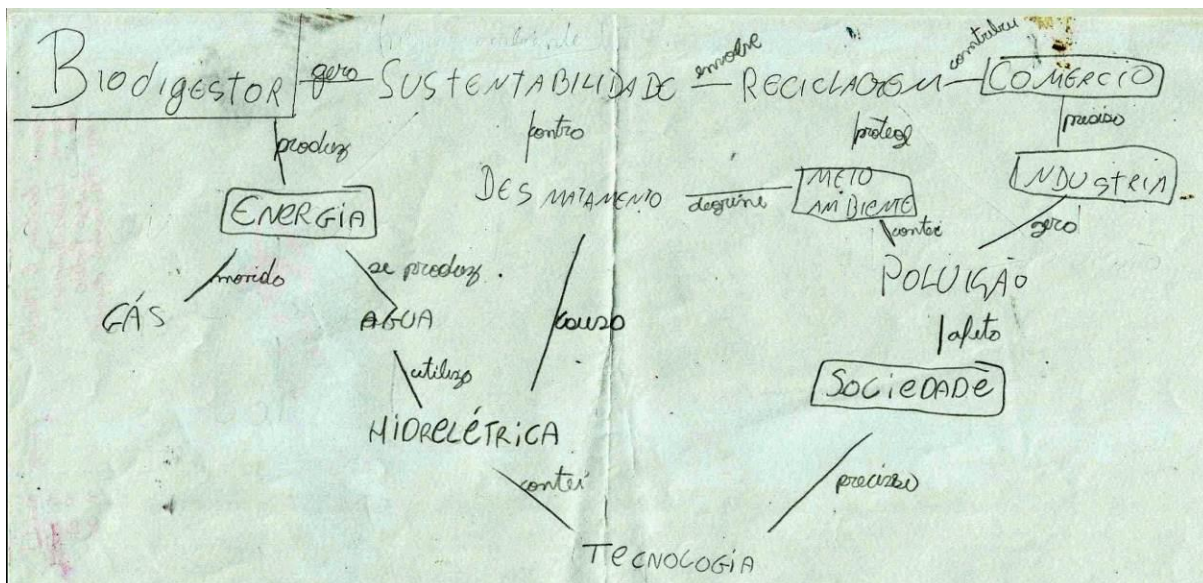 Biodigestor gera SUSTENTABILIDADE envolve RECICLAGEM contribui COMERCIO
produz contra protege precisa
ENERGIA DESMATAMENTO degrini MEIO AMBIENTE INDUSTRIA
movido se produz. contei gera
GÁS AGUA causa POLUIÇÃO
utiliza afeta
HIDRELÉTRICA SOCIEDADE
contei precisa
TECNOLOGIA